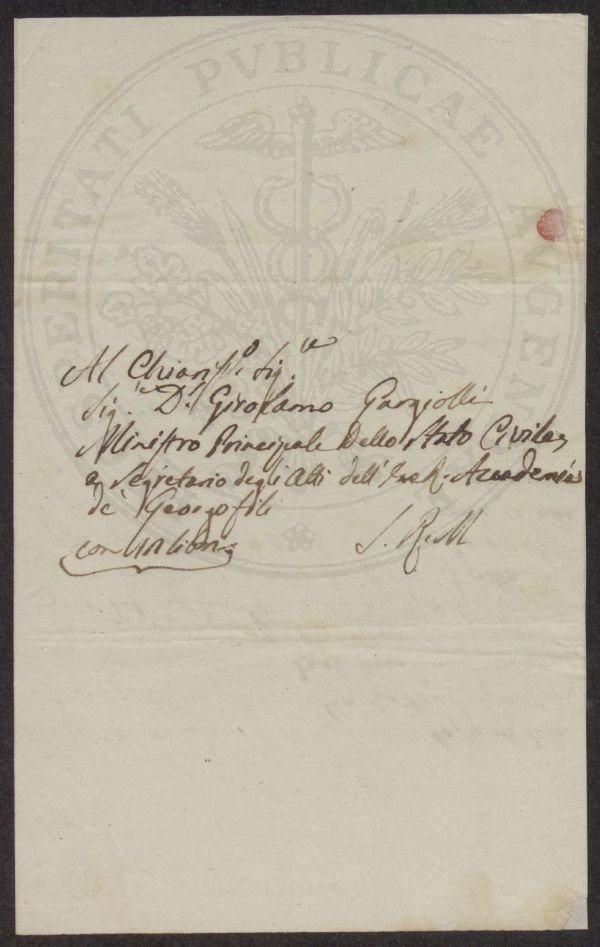 PROSPERITATI PVBLICAE AVGENDAE
Al Chiariss.º Sig.re
Sig.re D.r Girolamo Gargiolli
Ministro Principale Dello Stato Civile,
e Segretario degli Atti dell' I. e R. Accademia
de' Georgofili
con un libro
S. R. M.